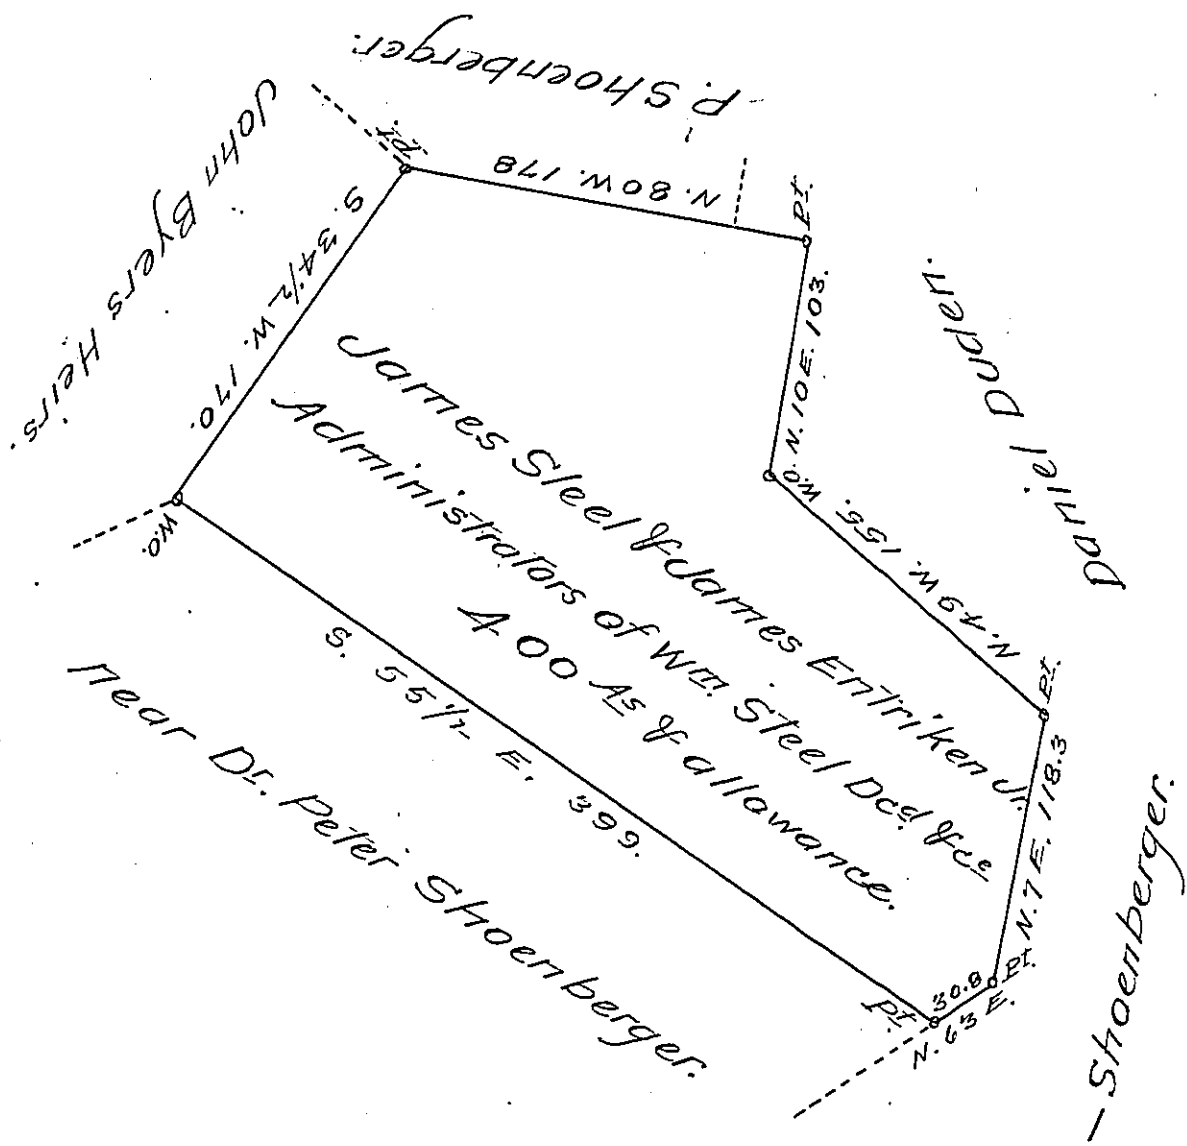 P. Shoenberger.
John Byers Heirs.
Pt.
N. 80 W. 178
Pt.
S. 34 1/2 W. 170.
N. 10 E. 103.
Daniel Duden.
W.O.
W.O.
N. 49 W. 155.
James Steel & James Entriken Jr.
Administrators of Wm. Steel Dcd. &ce
400 As & allowance.
S. 55 1/2 E. 399.
near Dr. Peter Shoenberger.
Pt.
N. 7 E. 118.3
Pt.
30.8
N. 63 E.
Pt
— Shoenberger.